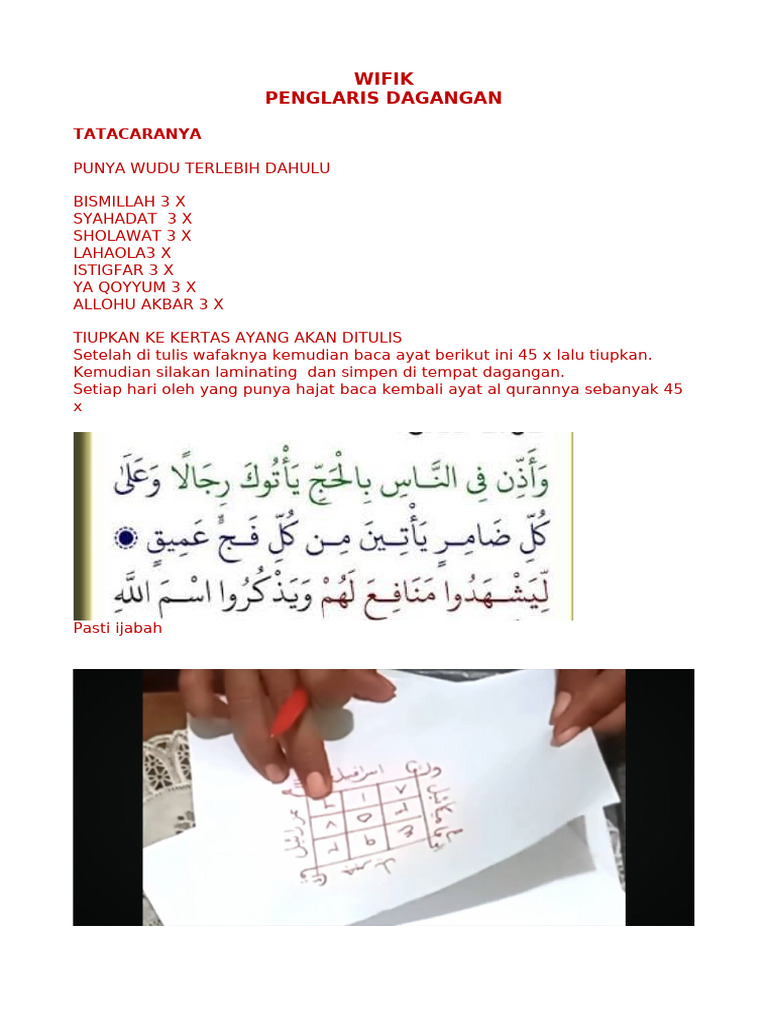 WIFIK
PENGLARIS DAGANGAN
TATACARANYA
PUNYA WUDU TERLEBIH DAHULU
BISMILLAH 3 X
SYAHADAT  3 X
SHOLAWAT 3 X
LAHAOLA3 X
ISTIGFAR 3 X
YA QOYYUM 3 X
ALLOHU AKBAR 3 X
TIUPKAN KE KERTAS AYANG AKAN DITULIS
Setelah di tulis wafaknya kemudian baca ayat berikut ini 45 x lalu tiupkan.
Kemudian silakan laminating  dan simpen di tempat dagangan.
Setiap hari oleh yang punya hajat baca kembali ayat al qurannya sebanyak 45
x
وَأَذِّن فِى النَّاسِ بِالْحَجِّ يَأْتُوكَ رِجَالًا وَعَلَىٰ
كُلِّ ضَامِرٍ يَأْتِينَ مِن كُلِّ فَجٍّ عَمِيقٍ
لِّيَشْهَدُوا مَنَافِعَ لَهُمْ وَيَذْكُرُوا اسْمَ اللَّهِ
Pasti ijabah
اسرافيل
١ ٨
٧ ٥ ٣
٩
عزرائيل
ميكائيل